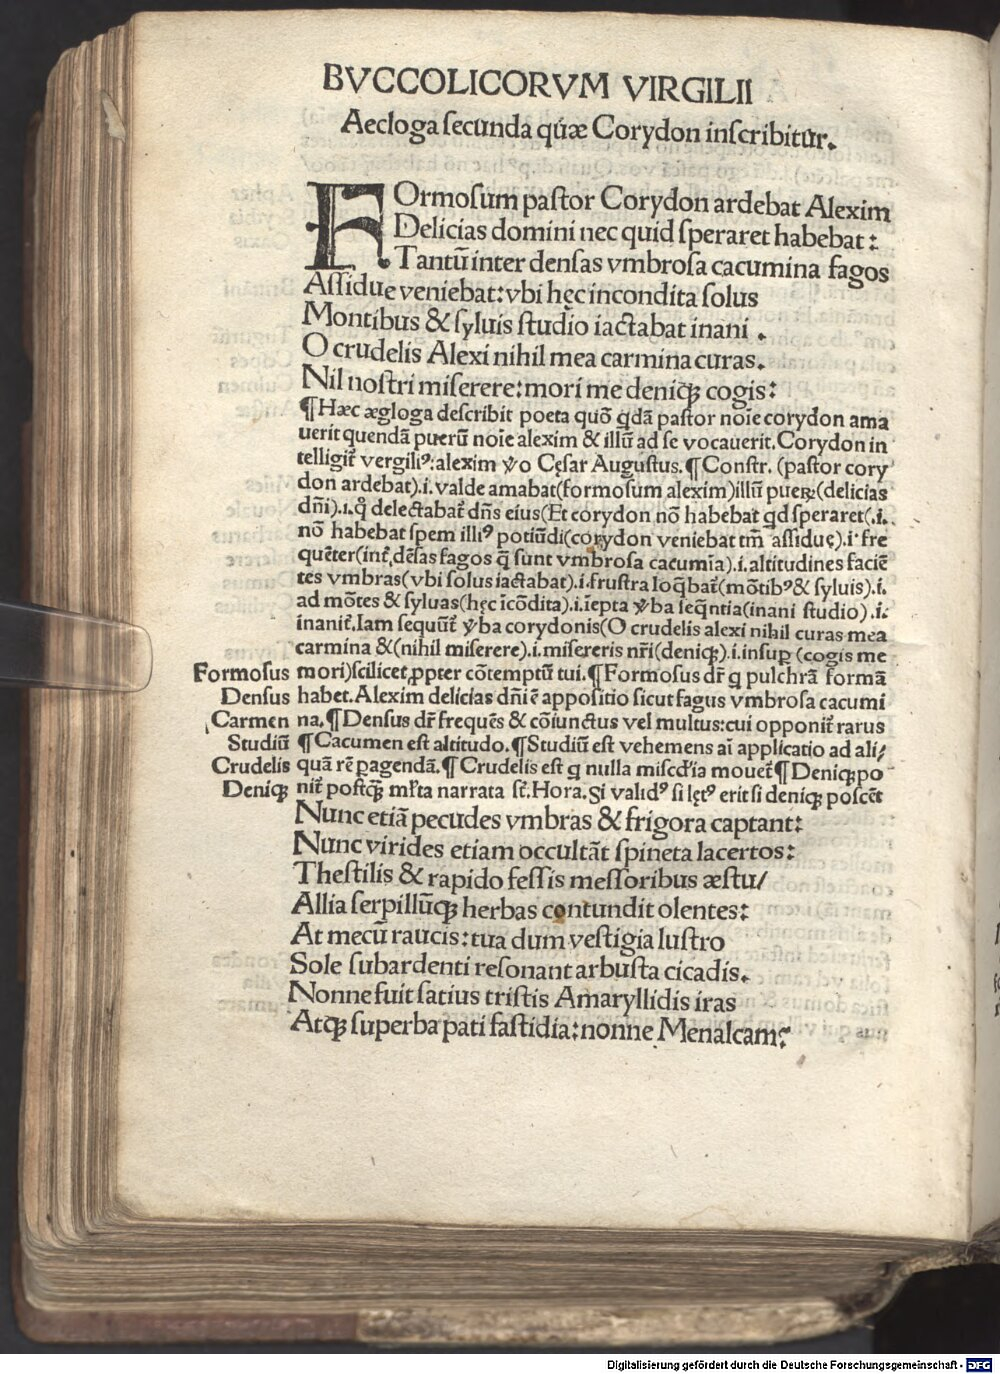 BVCCOLICORVM VIRGILII
Aecloga secunda quæ Corydon inscribitur.
FOrmosum pastor Corydon ardebat Alexim
Delicias domini nec quid speraret habebat:
Tantũ inter densas vmbrosa cacumina fagos
Assidue veniebat: vbi hęc incondita solus
Montibus & syluis studio iactabat inani.
O crudelis Alexi nihil mea carmina curas.
Nil nostri miserere: mori me deniqꝫ cogis:
¶Hæc ægloga describit poeta quõ qdã pastor noĩe corydon ama
uerit quendã puerũ noĩe alexim & illũ ad se vocauerit. Corydon in
telligit᷑ vergiliꝰ: alexim ỽo Cęsar Augustus. ¶Constr. (pastor cory
don ardebat).i. valde amabat(formosum alexim)illũ puerꝝ(delicias
dñi).i. q̃ delectabat᷑ dñs eius(Et corydon nõ habebat qd speraret(.i.
nõ habebat spem illiꝰ potiũdi(corydon veniebat tm̃ assidue).i. fre
quẽter(int᷑ dẽsas fagos q̃ sunt vmbrosa cacumĩa).i. altitudines faciẽ
tes vmbras(vbi solus iactabat).i. frustra loq̃bat᷑(mõtibꝰ & syluis).i.
ad mõtes & syluas(hęc ĩcõdita).i. ĩepta ỽba seq̃ntia(inani studio).i.
inanit᷑. Iam sequũt᷑ ỽba corydonis(O crudelis alexi nihil curas mea
carmina &(nihil miserere).i. misereris nr̃i(deniqꝫ).i. insuꝑ (cogis me
Formosus mori)scilicet ꝓpter cõtemptũ tui. ¶Formosus dr̃ q pulchrã formã
Densus habet. Alexim delicias dñi ẽ appositio sicut fagus vmbrosa cacumi
Carmen na. ¶Densus dr̃ frequẽs & cõiunctus vel multus: cui opponit᷑ rarus
Studiũ ¶Cacumen est altitudo. ¶Studiũ est vehemens aĩ applicatio ad ali/
Crudelis quã rẽ ꝑagendã. ¶Crudelis est q nulla miscd̃ia mouet᷑ ¶Deniqꝫ po
Deniqꝫ nit᷑ postqꝫ ml̃ta narrata st̃. Hora. Si validꝰ si lętꝰ erit si deniqꝫ poscẽs
Nunc etiã pecudes vmbras & frigora captant:
Nunc virides etiam occultãt spineta lacertos:
Thestilis & rapido fessis messoribus æstu/
Allia serpillũqꝫ herbas contundit olentes:
At mecũ raucis: tua dum vestigia lustro
Sole sub ardenti resonant arbusta cicadis.
Nonne fuit satius tristis Amaryllidis iras
Atqꝫ superba pati fastidia: nonne Menalcam?
Digitalisierung gefördert durch die Deutsche Forschungsgemeinschaft - DFG